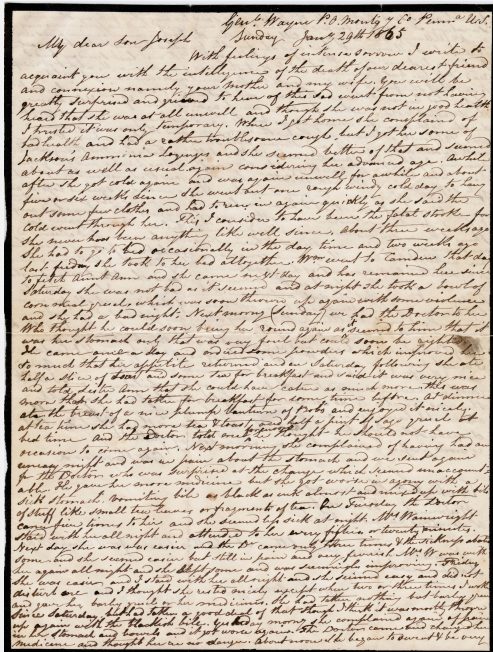 Genl. Wayne P.O. Montg'y Co Penna U.S.
Sunday Jany 29th 1865
My dear Son Joseph
With feelings of intense sorrow I write to
acquaint you with the intelligence of the death of our dearest friend
and connexion namely your Mother and my wife. You will be
greatly surprised and grieved to hear of the sad event from not having
heard that she was at all unwell and though she was not in good health
I trusted it was only temporary. When I got home she complained of
bad health and had a rather troublesome cough, but I got her some of
Jackson's Ammonia Lozenges and she seemed better of that and seemed
about as well as usual again considering her advanced age. Awhile
after she got cold again and was again unwell for awhile and about
five or six weeks since she went out one rough windy cold day to hang
out some few clothes and had to run in again quickly as she said the
cold went through her. This I consider to have been the fatal stroke for
she never has been anything like well since. About three weeks ago
She had to go to bed occasionally in the day time and two weeks ago
last friday she took to her bed altogether. Wm went to Camden that day
to fetch Aunt Ann and she came next day and has remained here since
Saturday she was not bad as it seemed and at night she took a bowl of
corn meal gruel, which was soon thrown up again with some violence
and she had a bad night. Next morng (Sunday) we had the Doctor to her
Who thought he could soon bring her round again as seemed to him that it
was her stomach only that was very foul but would soon be righted
He came once a day and ordered powders which improved her
so much that her appetite returned and on Saturday following she ate
half a slice of toast and an egg for breakfast and said it was very nice
and told the Doctor that she could have eaten as much more. this was
more than she had taken for breakfast for some time before. At dinner
ate the breast of a nice plump of Bobs and enjoyed it nicely,
at tea time she had more tea & toast and half a pint of sago gruel at
bed time And the Doctor told me he thought he should not have
occasion to come again. Next morng she complained of having had an
uneasy night and was sick about the stomach and we sent again
for the Doctor who was surprised at the change which seemed unaccount
able. He gave her more medicine but she got worse again with a
sick stomach, vomiting bile as black as ink almost and mixed up with bits
of stuff like small tea leaves or fragments of tea. On Tuesday the Doctor
came five times to her and she seemed less sick at night. Mrs Wainwright
staid with her all night and attended to her every fifteen or twenty minutes.
Next day she was easier and the Dr came only three times & the sickness abated
some and she seemed easier but still in pain and feverish Mrs W was with
her again all night and she slept some and was seemingly improving. Friday
she was easier and I staid with her all night and she seemed easy and did not
disturb me and I thought she rested nicely except when two or three times I awoke
and gave her barley water or her medicine and had taken nothing but barley gruel
since Saturday and had taken a good deal of that though I think it was mostly thrown
up again with the blackish bile. Yesterday morng she complained again of pain
in her stomach and bowels and it got worse again. The Doctor came and changed her
medicine and thought her in no danger. About noon she began to sweat & be very